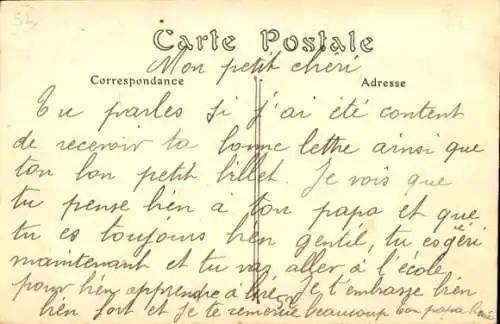 Carte Postale
Mon petit chéri
Correspondance
Adresse
Tu parles si j'ai été content
de recevoir ta bonne lettre ainsi que
ton bon petit billet. Je vois que
tu pense bien à ton papa et que
tu es toujours bien gentil, tu es géri
maintenant et tu vas aller à l'école
pour bien apprendre à lire. Je t'embrasse bien
bien fort et je te remercie beaucoup ton papa